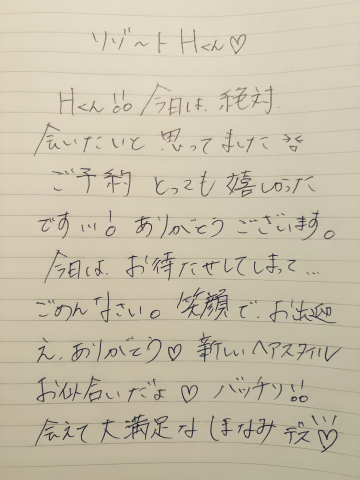 リゾ〜ト Hくん♡
Hくん!! 今日は、絶対
会いたいと 思ってました
ご予約 とっても 嬉しかった
です!!! ありがとう ございます。
今日は、お待たせしてしまって...
ごめんなさい。笑顔で、お出迎
え、ありがとう♡ 新しいヘアスタイル
お似合いだよ♡ バッチリ!!
会えて 大満足な ほなみ デス♡